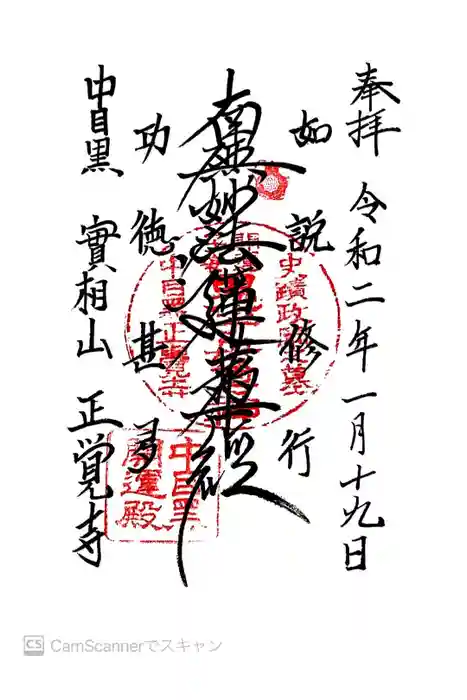 奉拝 令和二年一月十九日
如説修行
南無妙法蓮華経
功徳甚多
中目黒 實相山 正覚寺
中目黒
開運殿
CS CamScannerでスキャン